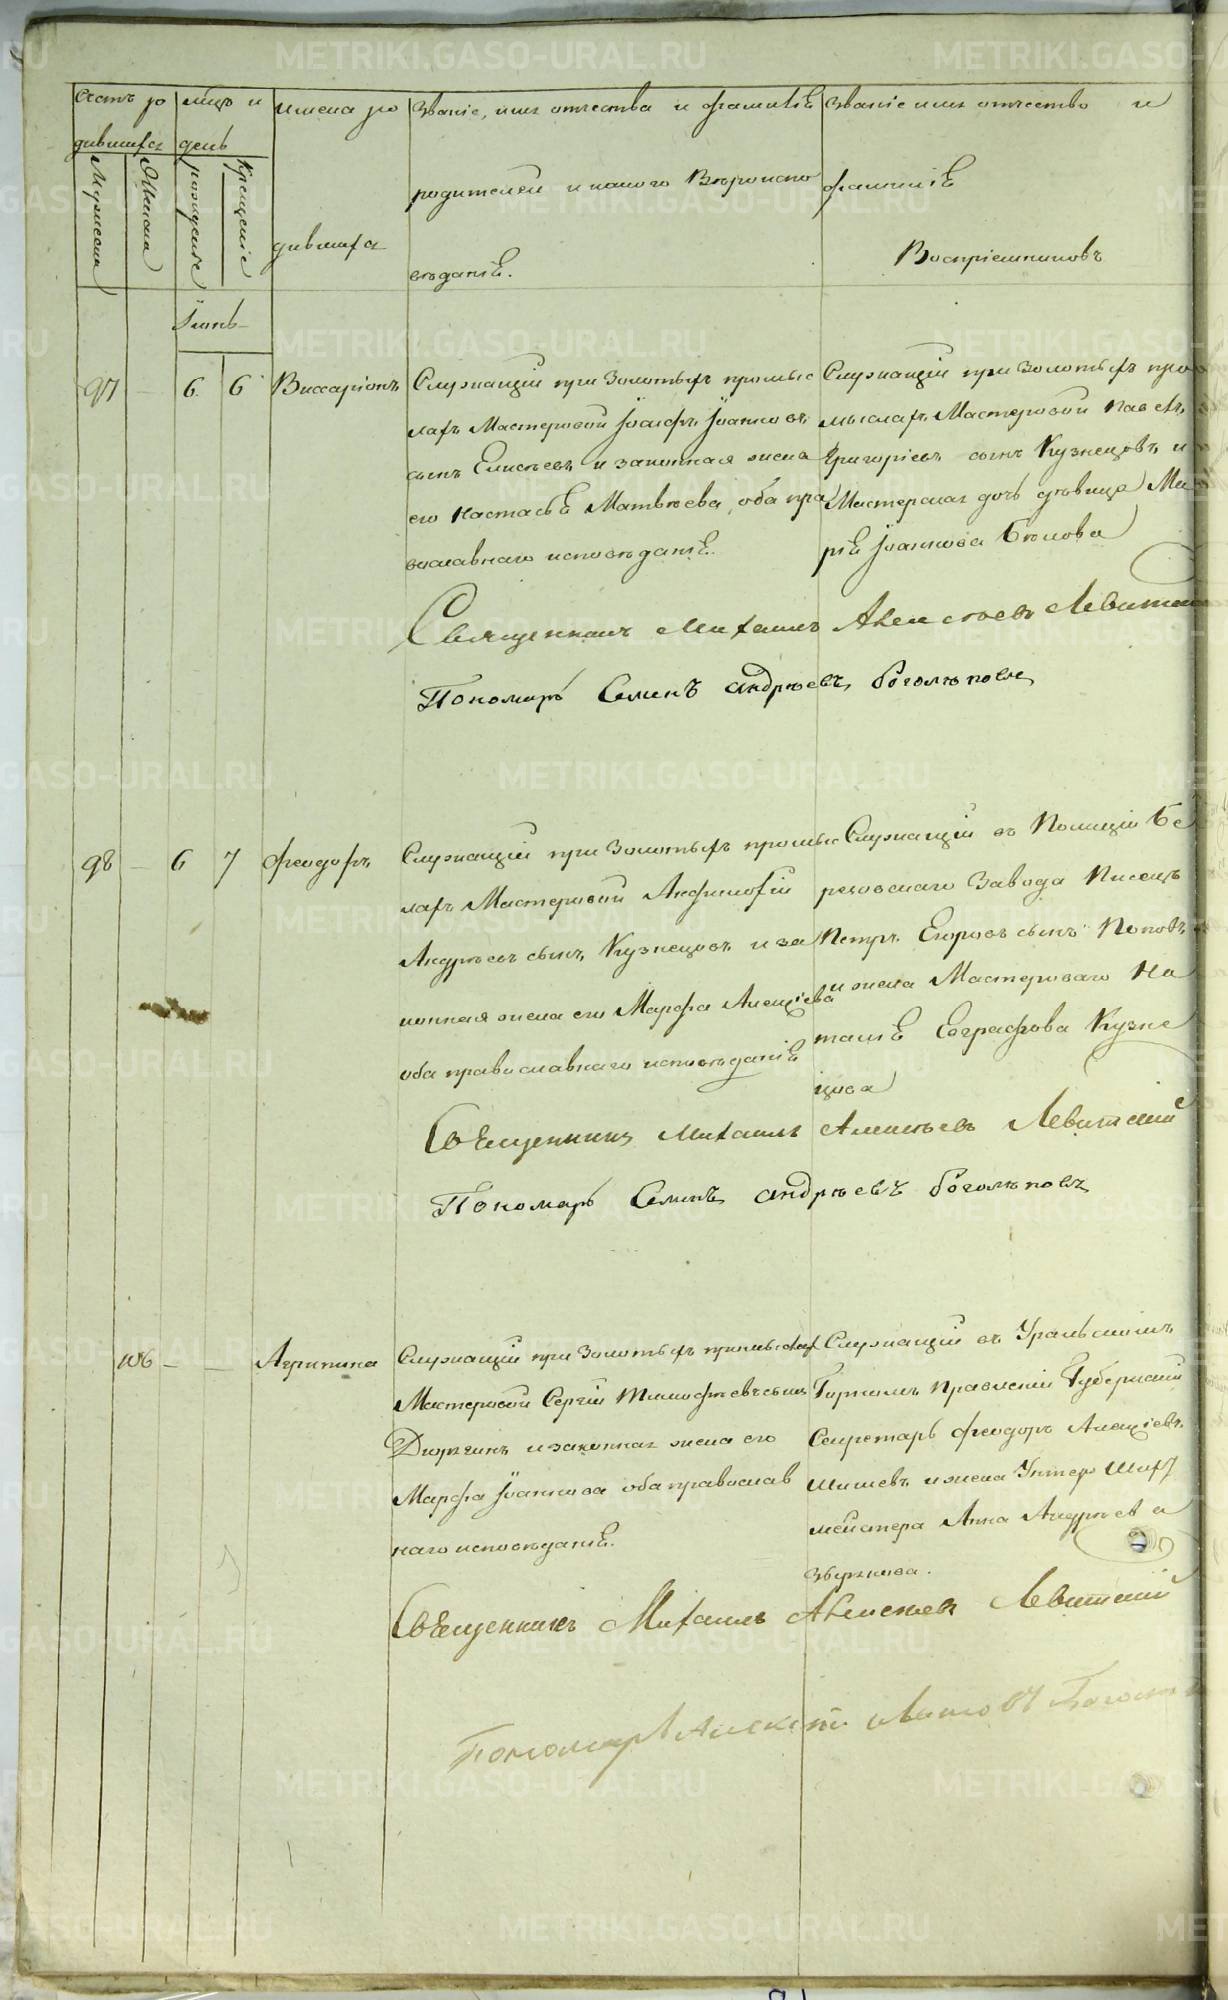 Счетъ ро
дившихся
Мужеска
Женска
мѣсяцъ и
день
рожденіе
Крещеніе
имена ро
дившихся
Званіе, имя отчества и фамиліѣ
родителей и какого Вѣроиспо
вѣданіѣ.
Званіе имя отчество и
фамиліѣ
Воспріемниковъ
Іюнь
97 — 6. 6 Виссаріонъ
Служащій при Золотыхъ промыс
лахъ Мастеровой Іосифъ Іоанновъ
сынъ Елисѣевъ и законная жена
его Настасьѣ Матвѣева, оба пра
вославнаго исповѣданіѣ.
Служащій при Золотыхъ про
мыслахъ Мастеровой Павелъ
Григорьевъ сынъ Кузнецовъ и
Мастерская дочь дѣвица Ма
ріѣ Іоаннова Бѣлова
Священникъ Михаилъ Алексѣевъ Левитскій
Пономарь Семенъ Андрѣевъ Боголѣповъ
98 — 6 7 Феодоръ
Служащій при Золотыхъ промыс
лахъ Мастеровой Анфилофій
Андрѣевъ сынъ Кузнецовъ и за
конная жена его Марфа Алексіева
оба православнаго исповѣданіѣ
Служащій въ Полиціи Бе
резовскаго Завода Писецъ
Петръ Егоровъ сынъ Поповъ
и жена Мастероваго На
таліѣ Евграфова Кузне
цова
Священникъ Михаилъ Алексѣевъ Левитскій
Пономарь Семенъ Андрѣевъ Боголѣповъ
106 — — Агрипина
Служащій при Золотыхъ промыслах
Мастеровой Сергій Тимофѣевъ сынъ
и законная жена его
Марфа Іоаннова оба православ
наго исповѣданіѣ.
Служащій въ Уральскомъ
Горномъ Правленіи Губернскій
Секретарь Феодоръ Алексіевъ
Шишевъ и жена Унтер Шихт
мейстера Анна Андрѣева
Звѣрькова.
Священникъ Михаилъ Алексѣевъ Левитскій
Пономарь Алексѣй Ивановъ
METRIKI.GASO-URAL.RU